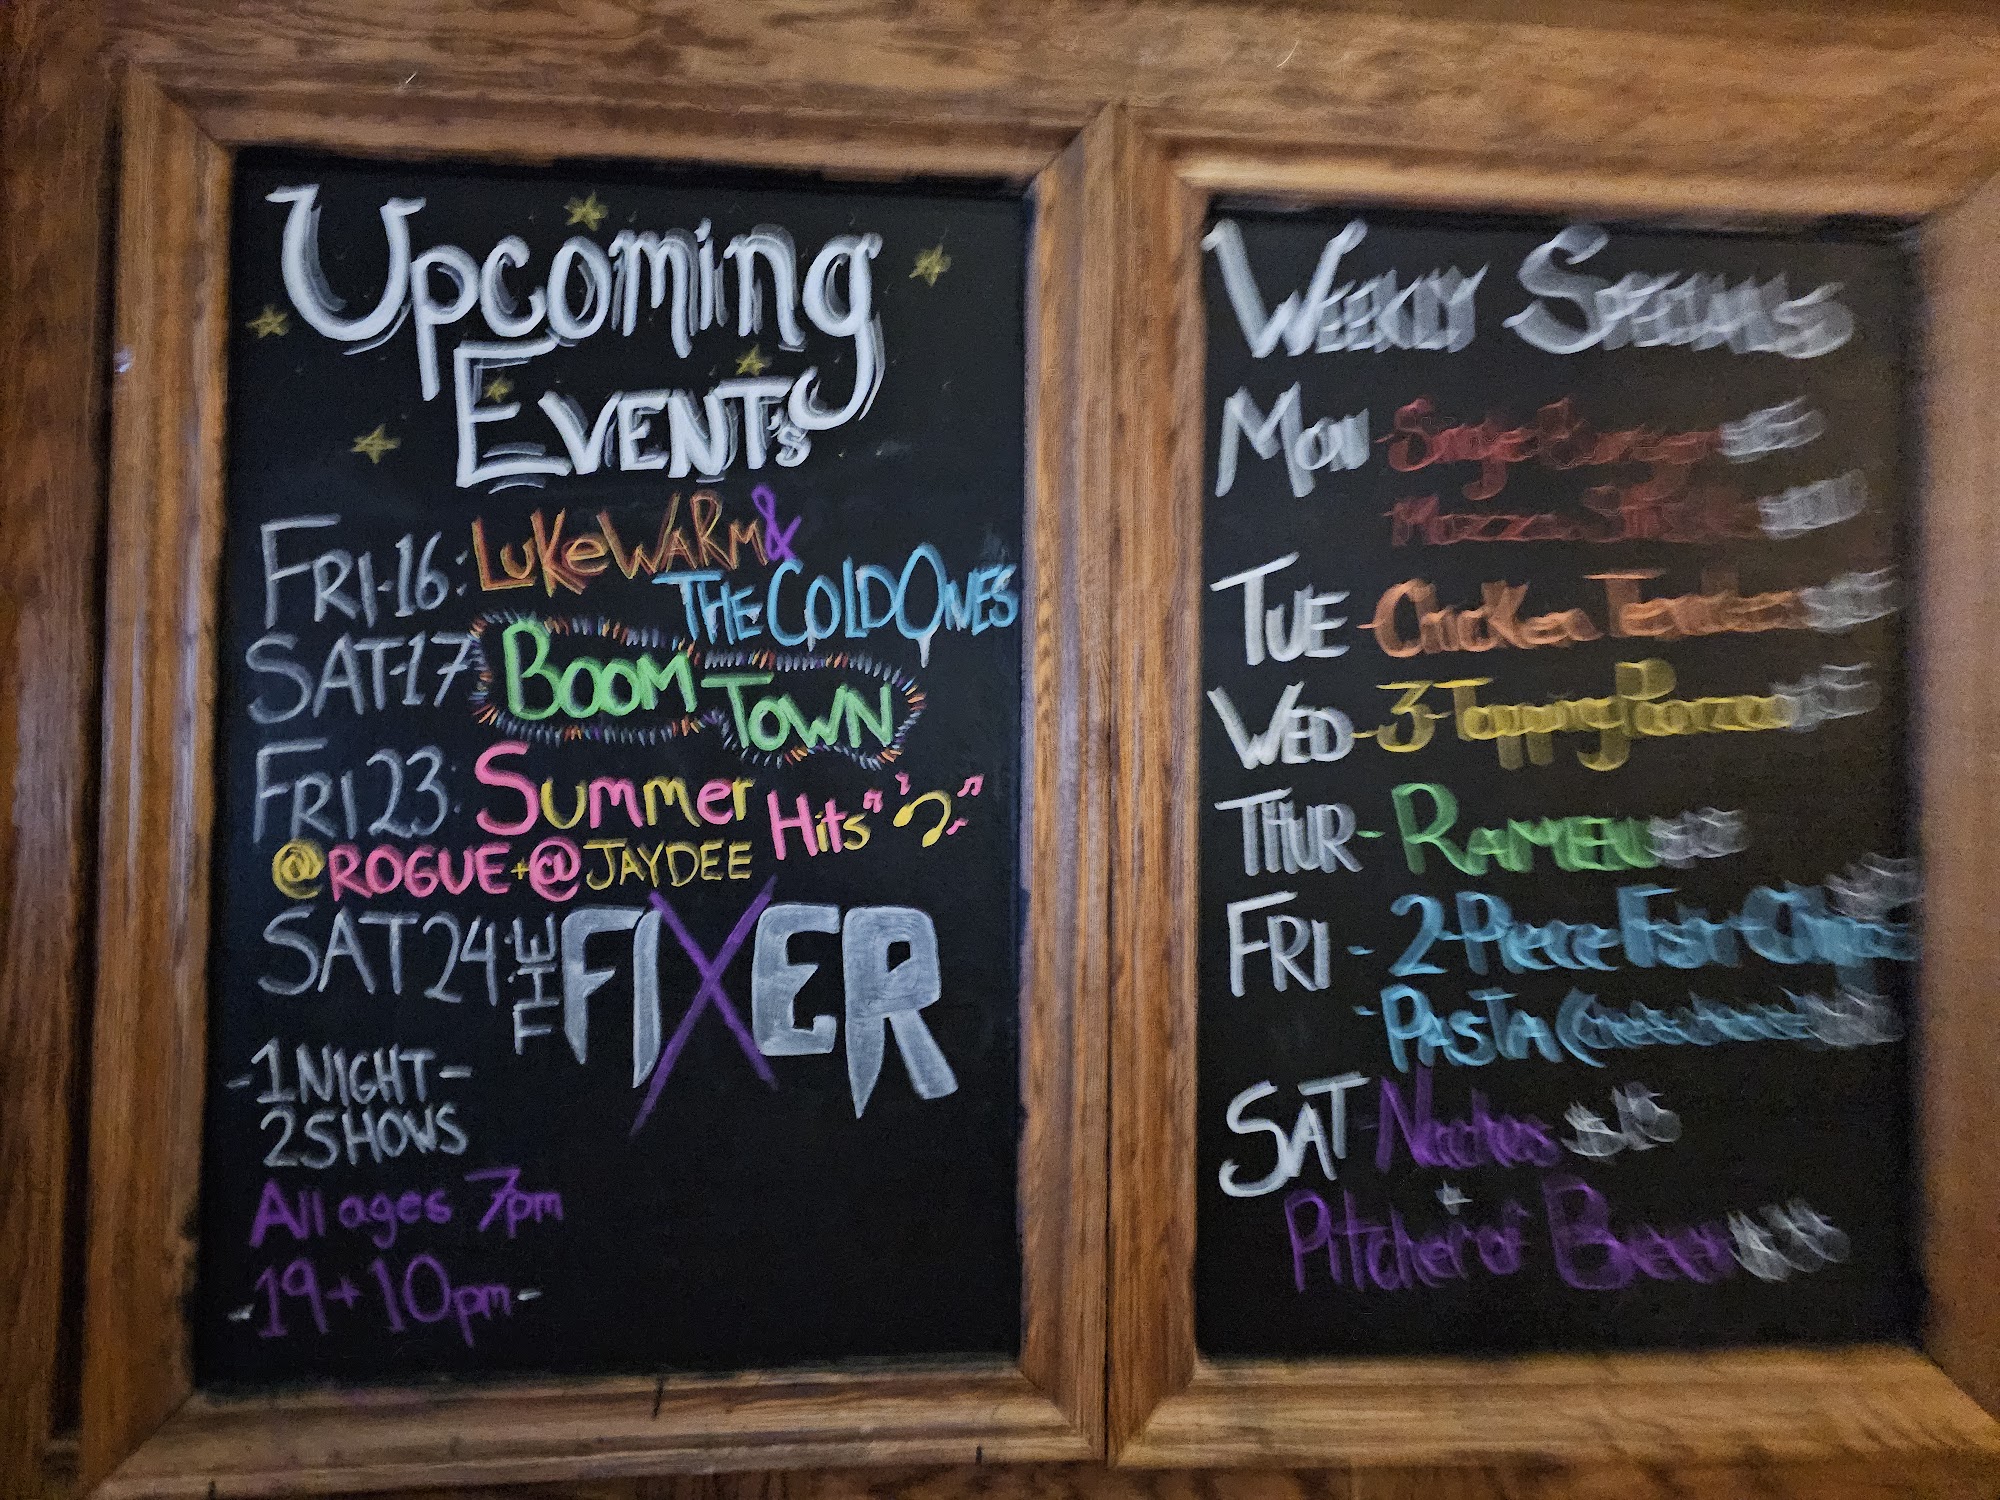 Upcoming
EVENT's
FRI-16: LUKEWARM &
THE COLD ONES
SAT-17 BOOM TOWN
FRI 23: Summer Hits
@ROGUE + @JAYDEE
SAT 24: THE FIXER
-1 NIGHT-
2 SHOWS
All ages 7pm
-19+ 10pm-
WEEKLY SPECIALS
MON -
MOZZA STICKS
TUE - CHICKEN TENDERS
WED - 3-Topping
THUR - RAMEN
FRI - 2-Piece Fish
- PASTA
SAT - Nachos
+
Pitcher of Beer